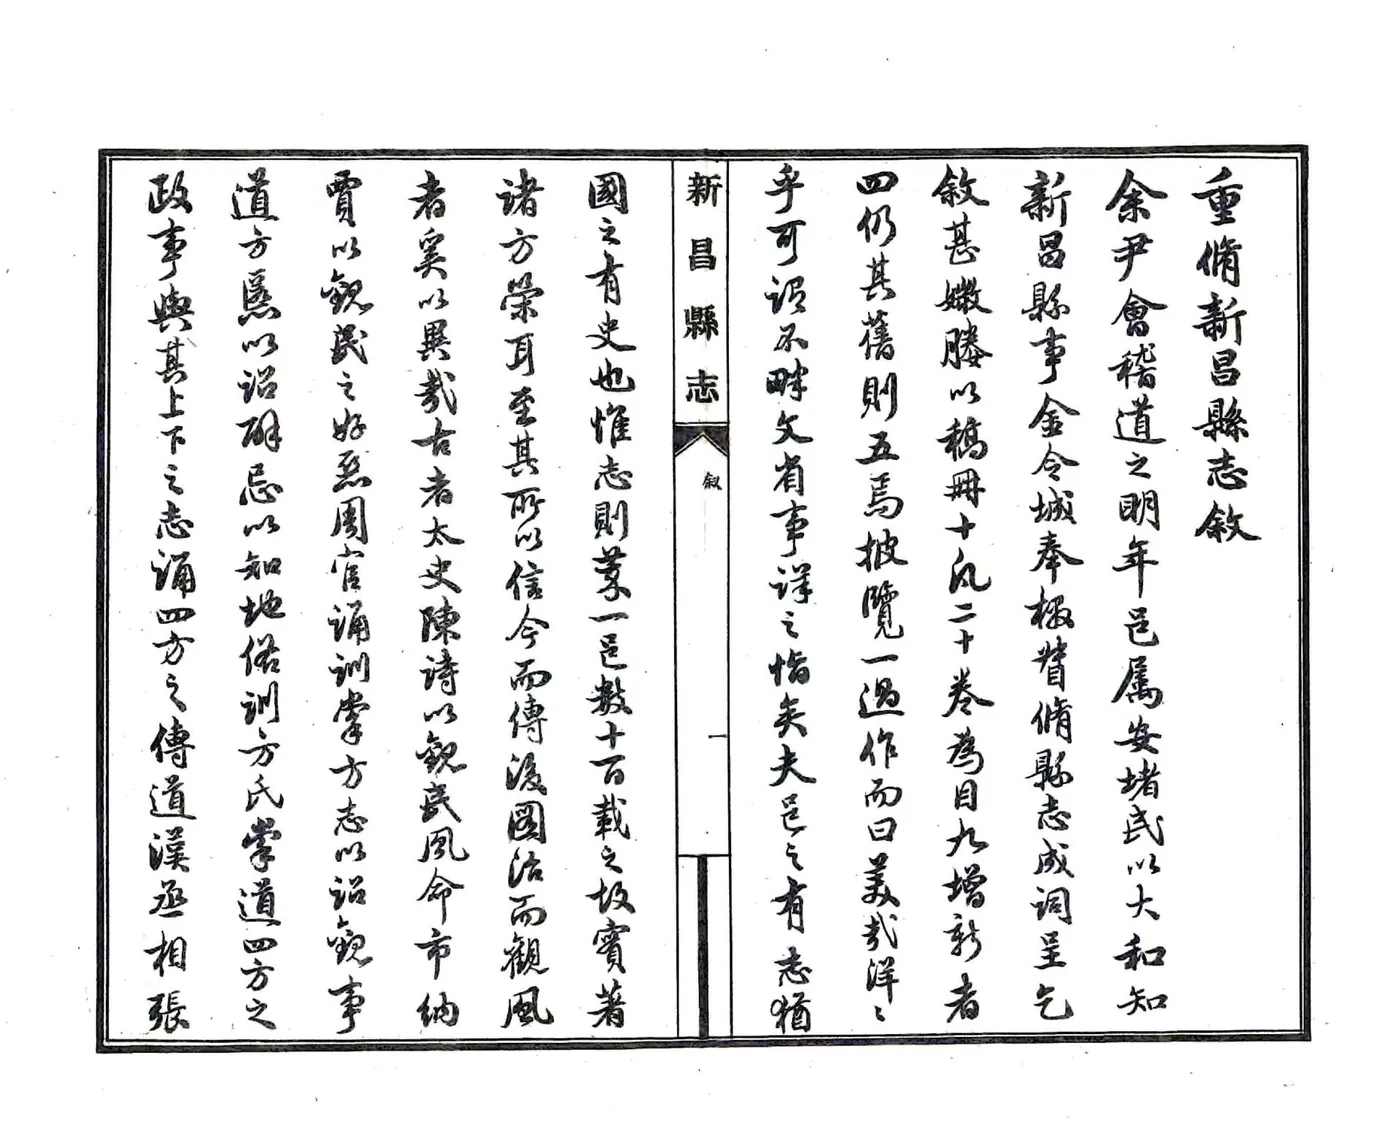 重脩新昌縣志敘
余尹會稽道之明年邑屬安堵民以大和知
新昌縣事金令城奉檄督脩縣志成詞呈乞
敘甚媺謄以稿冊十凡二十卷為目九增新者
四仍其舊則五焉披覽一過作而曰美哉洋〻
乎可謂不畔文省事詳之恉矣夫邑之有志猶
新昌縣志
敘
一
國之有史也惟志則蒐一邑數十百載之故實著
諸方策耳至其所以信今而傳後圖治而觀風
者奚以異哉古者太史陳詩以觀民風命市納
賈以觀民之好惡周官誦訓掌方志以詔觀事
道方慝以詔辟忌以知地俗訓方氏掌道四方之
政事與其上下之志誦四方之傳道漢丞相張